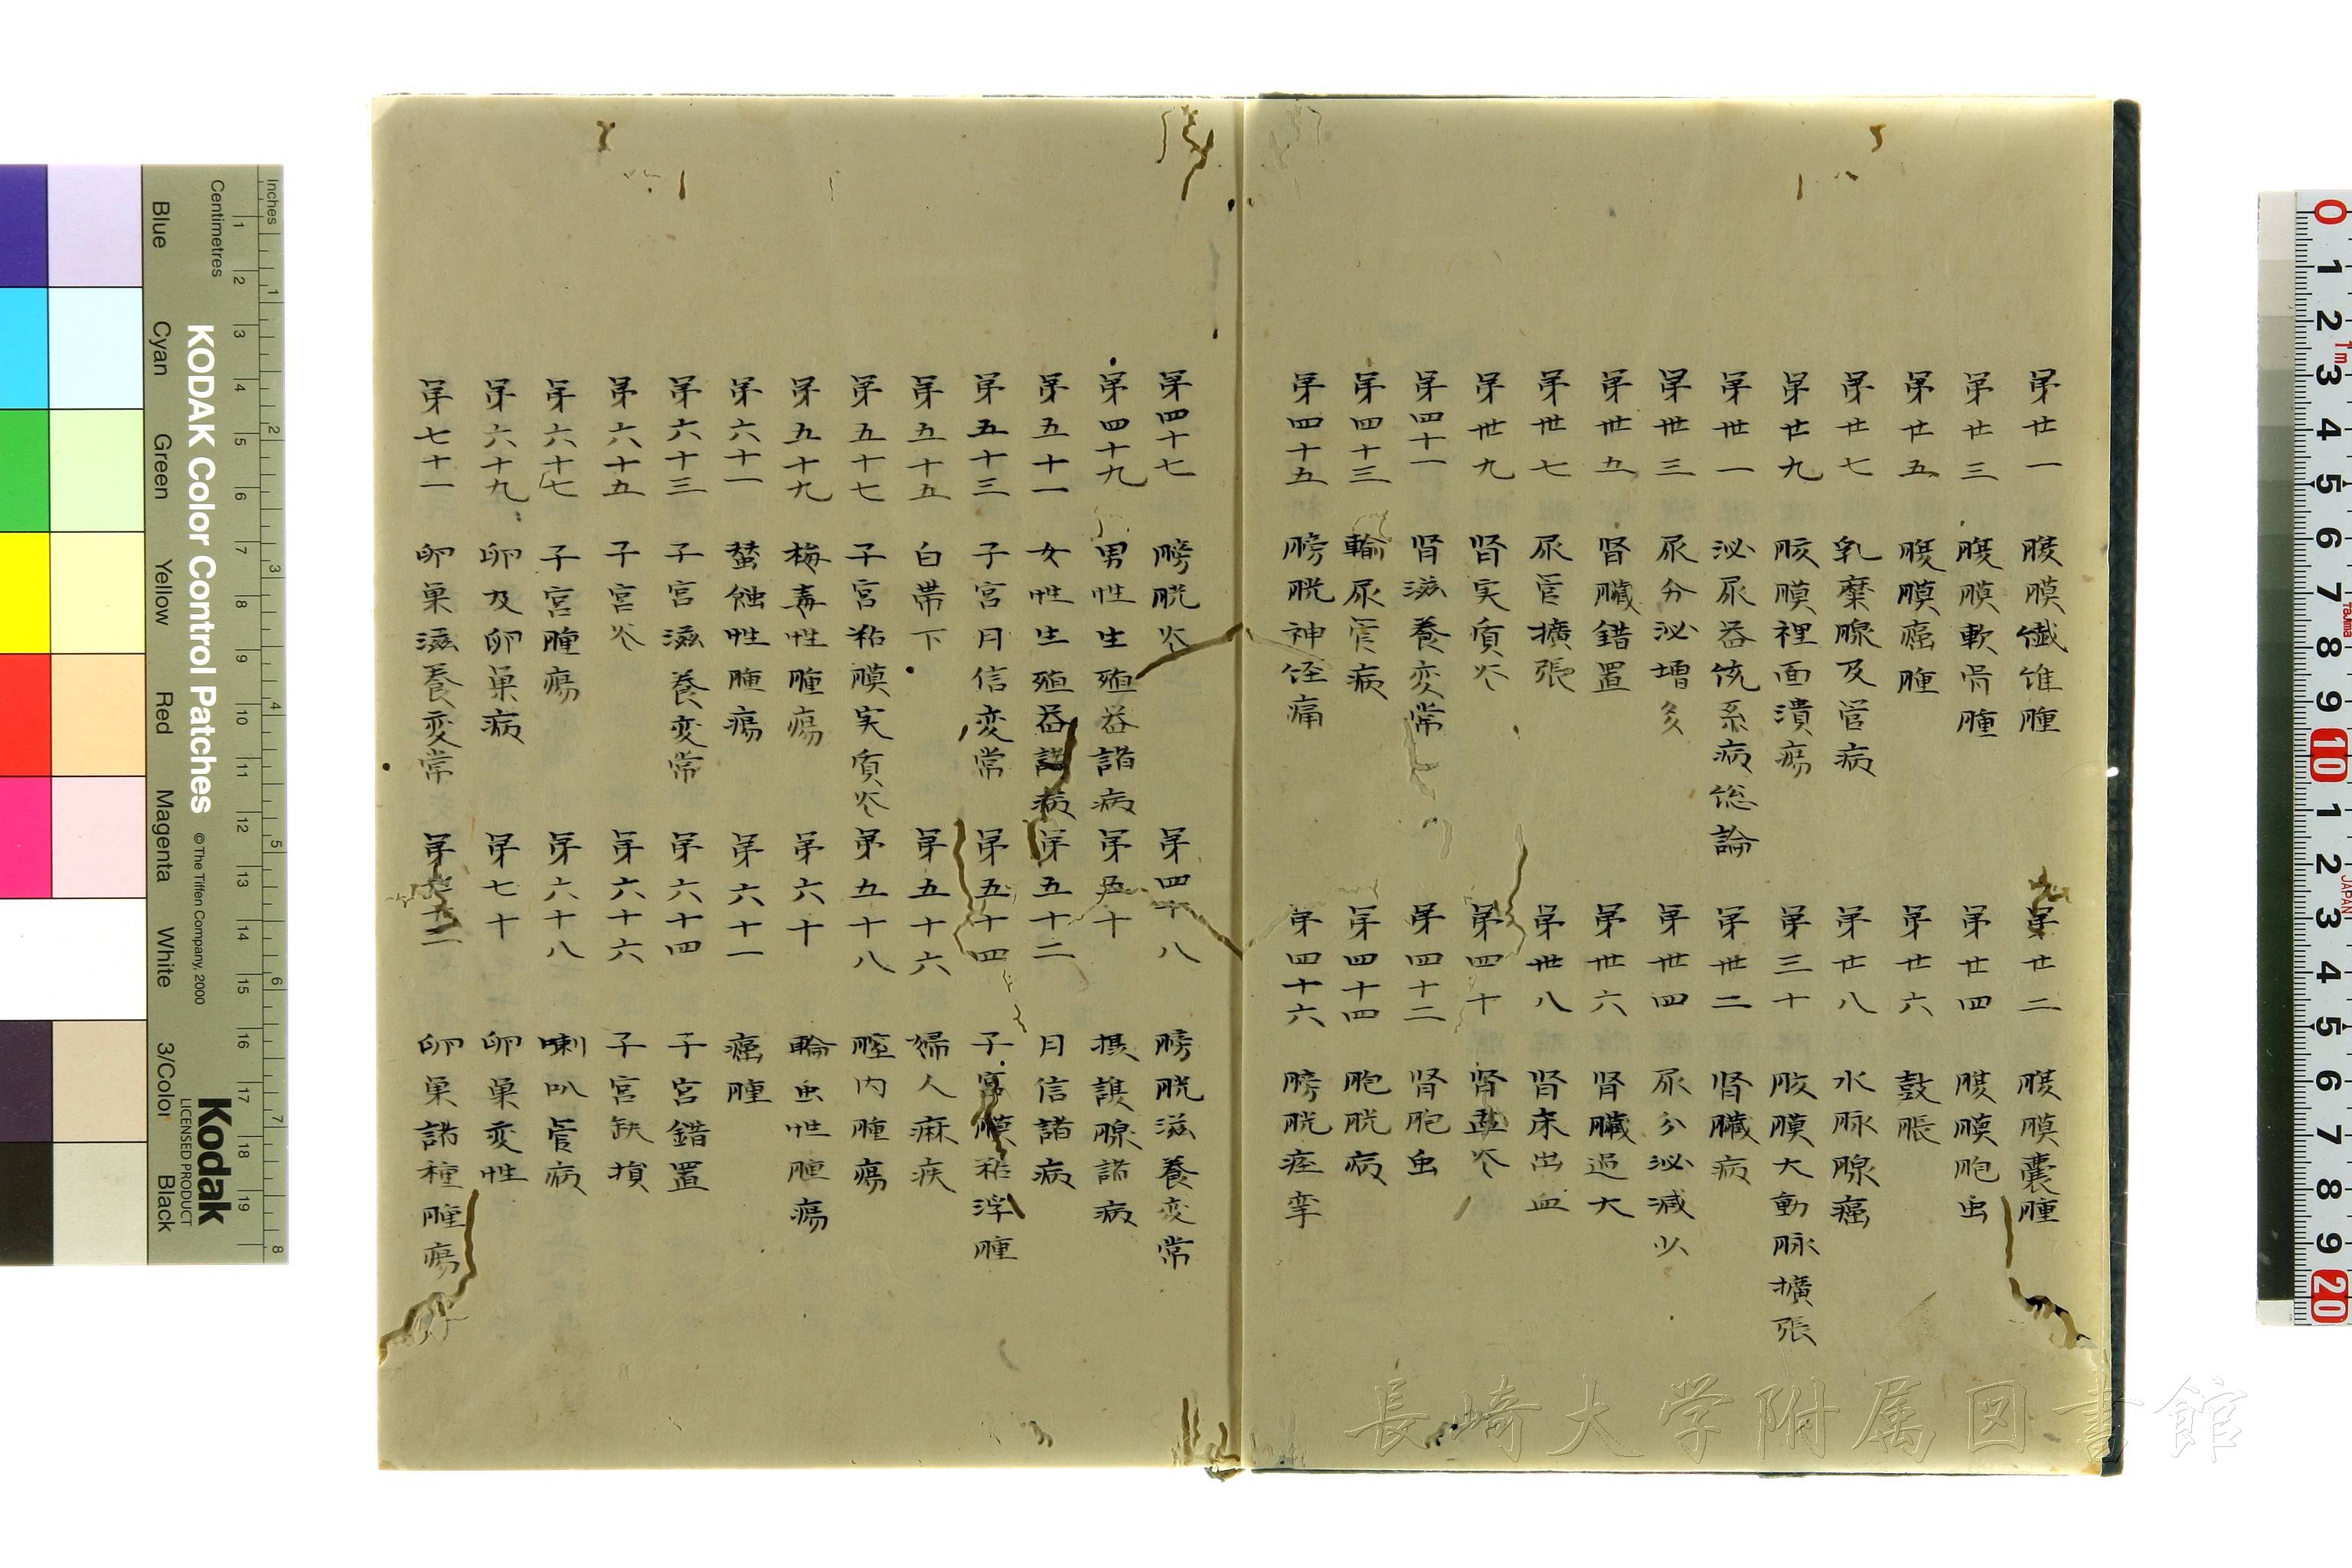 第廿一 腹膜纎維腫 第廿二 腹膜囊腫
第廿三 腹膜軟骨腫 第廿四 腹膜胞虫
第廿五 腹膜癌腫 第廿六 鼓脹
第廿七 乳糜腺及管病 第廿八 水脉腺癌
第廿九 腹膜裡面潰瘍 第三十 腹膜大動脉擴張
第卅一 泌尿器統系病総論 第卅二 肾臓病
第卅三 尿分泌増多 第卅四 尿分泌减少
第卅五 肾臓錯置 第卅六 肾臓過大
第卅七 尿管擴張 第卅八 肾床出血
第卅九 肾实质炎 第四十 肾盂炎
第四十一 肾滋養変常 第四十二 肾胞虫
第四十三 輸尿管病 第四十四 胞胱病
第四十五 膀胱神経痛 第四十六 膀胱痙挛
第四十七 膀胱炎 第四十八 膀胱滋養変常
第四十九 男性生殖器諸病 第五十 摂護腺諸病
第五十一 女性生殖器諸病 第五十二 月信諸病
第五十三 子宮月信変常 第五十四 子宮膜粘浮腫
第五十五 白帯下 第五十六 婦人麻疾
第五十七 子宮粘膜实质炎 第五十八 腟内腫瘍
第五十九 梅毒性腫瘍 第六十 輪虫性腫瘍
第六十一 蝕性腫瘍 第六十一 癌腫
第六十三 子宮滋養変常 第六十四 子宮錯置
第六十五 子宮炎 第六十六 子宮缺損
第六十七 子宮腫瘍 第六十八 喇叭管病
第六十九 卵及卵巣病 第七十 卵巣変性
第七十一 卵巣滋養変常 第七十二 卵巣諸種腫瘍
KODAK Color Control Patches
© The Tiffen Company, 2000
Kodak
LICENSED PRODUCT
Inches 1 2 3 4 5 6 7 8
Centimetres 1 2 3 4 5 6 7 8 9 10 11 12 13 14 15 16 17 18 19
Blue Cyan Green Yellow Red Magenta White 3/Color Black
0 1 2 3 4 5 6 7 8 9 10 1 2 3 4 5 6 7 8 9 20
Tajima
JAPAN
長崎大学附属図書館